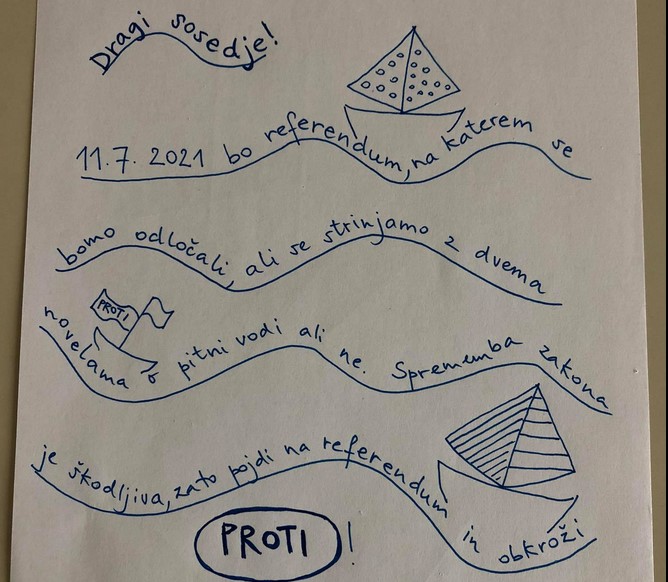 Dragi sosedje!
11.7. 2021 bo referendum, na katerem se
bomo odločali, ali se strinjamo z dvema
PROTI
novelama o pitni vodi ali ne. Sprememba zakona
je škodljiva, zato pojdi na referendum in obkroži
PROTI!